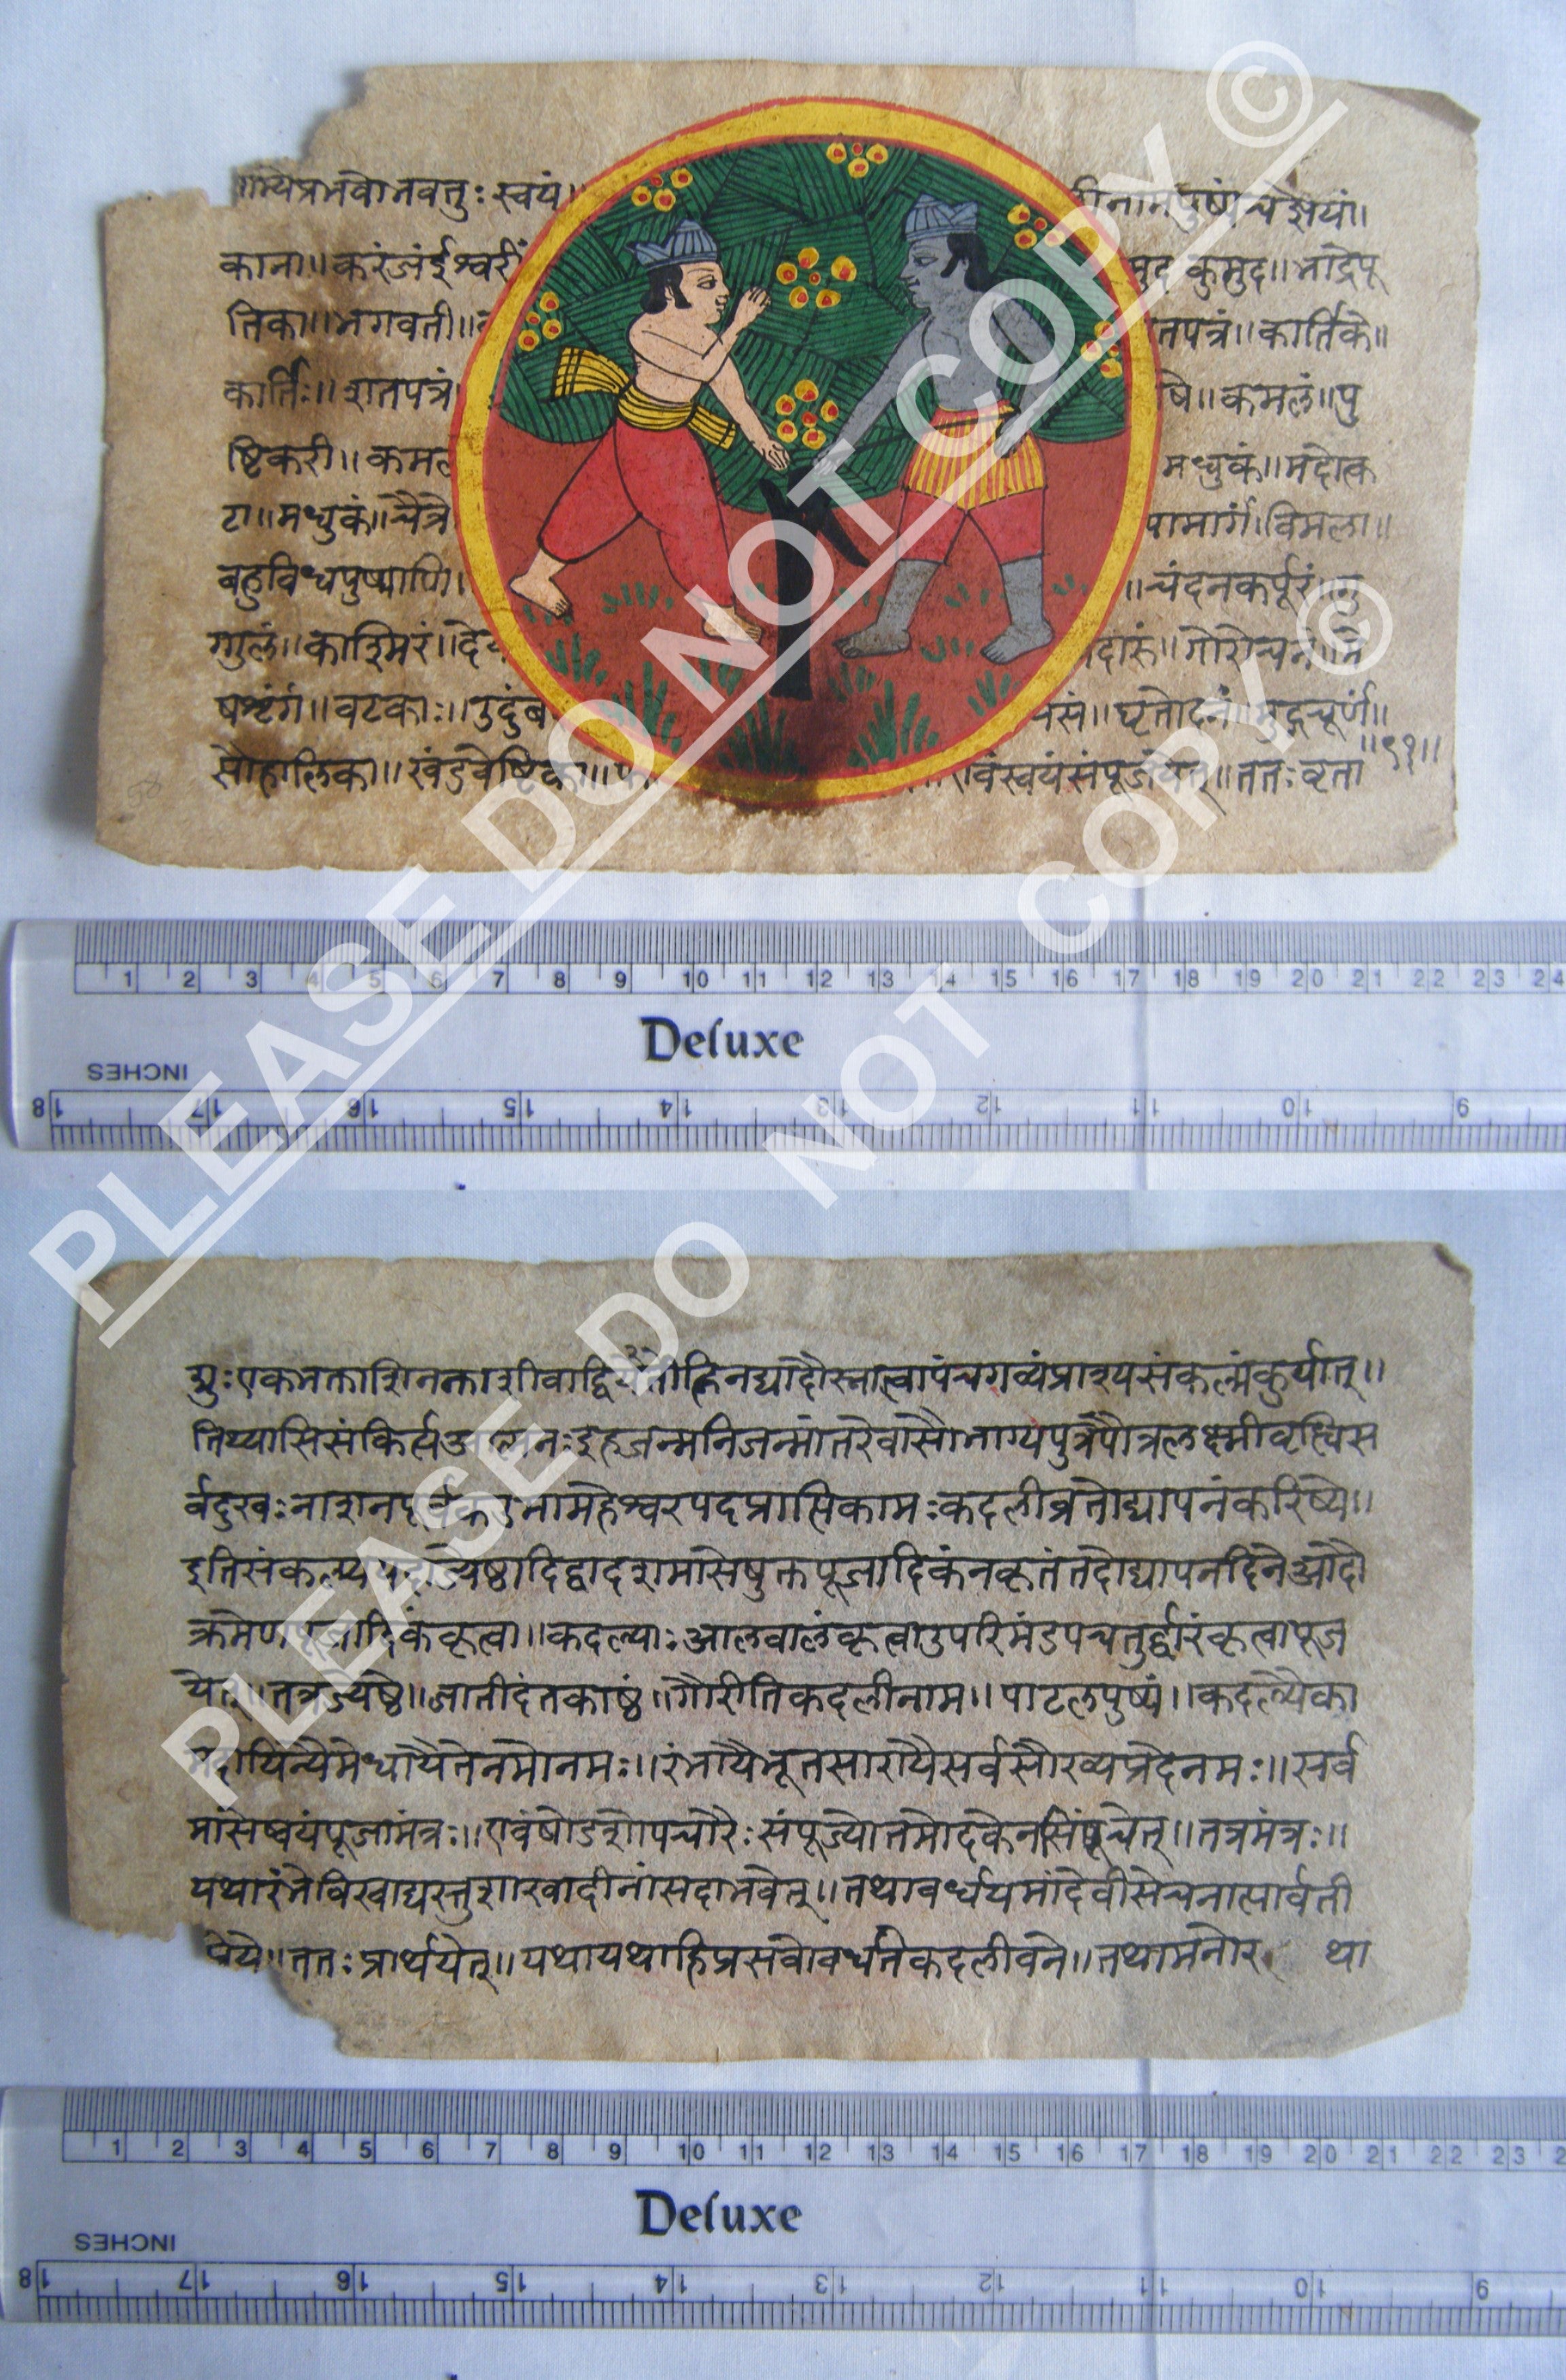 प्रभवोभवतुः स्वयं। नामपुष्पं
काना॥ करंजंईश्वरी कुमुद॥ भाद्रपृ
तिका॥ भगवती॥ तपत्रं॥ कार्तिके॥
कार्तिः॥ शतपत्रं षे॥ कमलं॥ पु
ष्टिकरी॥ कमल मधुकं॥ मदोत्क
टा॥ मधुकं॥ चैत्रे पामार्गं। विमला॥
बहुविधपुष्पाणि। ॥ चंदनकर्पूरं॥ गु
ग्गुलं॥ काश्मिरं॥ देव दारुं॥ गोरोचनं॥ मे
षशृंगं॥ वटकाः॥ घृतोदनं॥ मुद्गचूर्णं॥
सोहालिका॥ खंडवेष्टिका॥ वंस्वयंसंपूजयेत्॥ ततः वृता
॥९१॥
1 2 3 4 5 6 7 8 9 10 11 12 13 14 15 16 17 18 19 20 21 22 23 24
Deluxe
INCHES
18 17 16 15 14 13 12 11 10 9
युः एकभक्ताशिनक्ताशीवा नद्यादौस्नात्वापंचगव्यंप्राश्यसंकल्पंकुर्यात्॥
इहजन्मनिजन्मांतरेवासौभाग्यपुत्रपौत्रलक्ष्मीवृद्धिस
र्वदुखःनाशनपूर्वकउमामहेश्वरपदप्राप्तिकामःकदलीव्रतोद्यापनंकरिष्ये॥
इतिसंकल्प्य ज्येष्ठादिद्वादशमासेषुक्तपूजादिकंनकृतंतदोद्यापनदिनेआदौ
क्रमेणपूजादिकंकृत्वा॥ कदल्याःआलवालंकृत्वाउपरिमंडपचतुर्द्वारंकृत्वापूज
येत्॥ तत्रज्येष्ठे॥ जातीदंतकाष्ठं॥ गौरीतिकदलीनाम॥ पाटलपुष्पं॥ कदल्यैका
मदायिन्यैमेधायैतेनमोनमः॥ रंभायैभूतसारायैसर्वसौख्यप्रदेनमः॥ सर्व
मासेष्वयंपूजामंत्रः॥ एवंषोडशोपचारैःसंपूज्यो तत्रमंत्रः॥
यथारंभे शाखादीनांसदाभवेत्॥ तथावर्धयमांदेवीसेचनात्पार्वती
प्रिये॥ ततःप्रार्थयेत्॥ यथायथाहिप्रसवोवर्धतेकदलीवने॥ तथामनोर था
1 2 3 4 5 6 7 8 9 10 11 12 13 14 15 16 17 18 19 20 21 22 23
Deluxe
INCHES
18 17 16 15 14 13 12 11 10 9
PLEASE DO NOT COPY ©
PLEASE DO NOT COPY ©